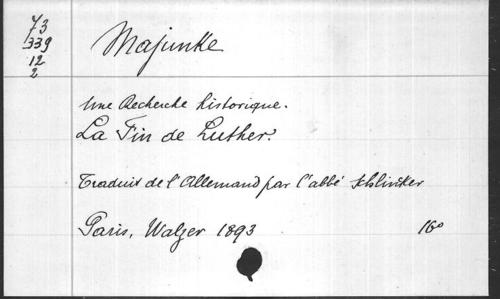 73
339
12
2
Majunke
Une Recherche historique.
La Fin de Luther.
Traduit de l'Allemand par l'abbé Schlincker
Paris, Walzer 1893 16º